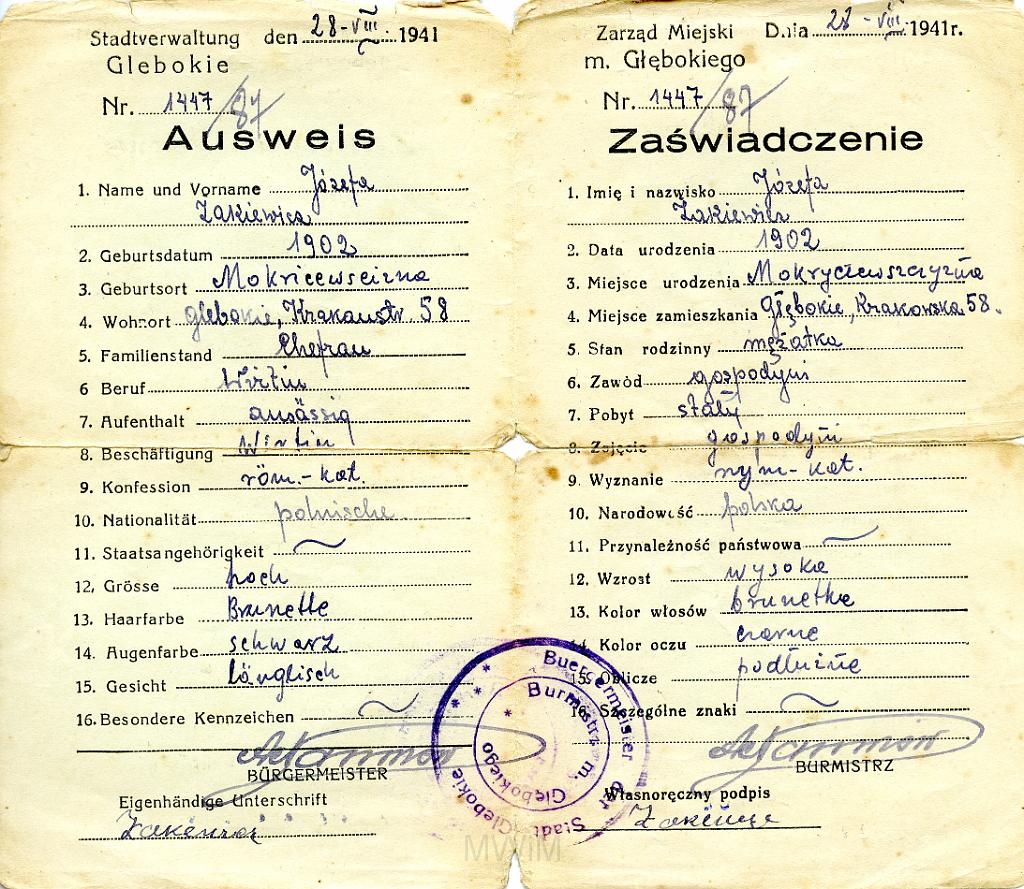 Stadtverwaltung den 28-VIII 1941
Glebokie
Nr. 1447/87
Ausweis
1. Name und Vorname Józefa
Żakiewicz
2. Geburtsdatum 1902
3. Geburtsort Mokricewscizna
4. Wohnort Glebokie, Krakaustr 58
5. Familienstand Ehefrau
6 Beruf Wirtin
7. Aufenthalt ansässig
8. Beschäftigung Wirtin
9. Konfession röm.-kat.
10. Nationalität polnische
11. Staatsangehörigkeit ~
12. Grösse hoch
13. Haarfarbe Brunette
14. Augenfarbe schwarz
15. Gesicht länglisch
16. Besondere Kennzeichen ~
BÜRGERMEISTER
Eigenhändige Unterschrift
Zarząd Miejski Dnia 28-VIII 1941 r.
m. Głębokiego
Nr. 1447/87
Zaświadczenie
1. Imię i nazwisko Józefa
Żakiewicz
2. Data urodzenia 1902
3. Miejsce urodzenia Mokryczewszczyzna
4. Miejsce zamieszkania Głębokie, Krakowska 58.
5. Stan rodzinny mężatka
6. Zawód gospodyni
7. Pobyt stały
8. Zajęcie gospodyni
9. Wyznanie rzym-kat.
10. Narodowość polska
11. Przynależność państwowa ~
12. Wzrost wysoka
13. Kolor włosów brunetka
14. Kolor oczu czarne
15. Oblicze podłużne
16. Szczególne znaki ~
BURMISTRZ
Własnoręczny podpis
Buergermeister der Stadt Glebokie
Burmistrz m. Głębokiego
MWiM